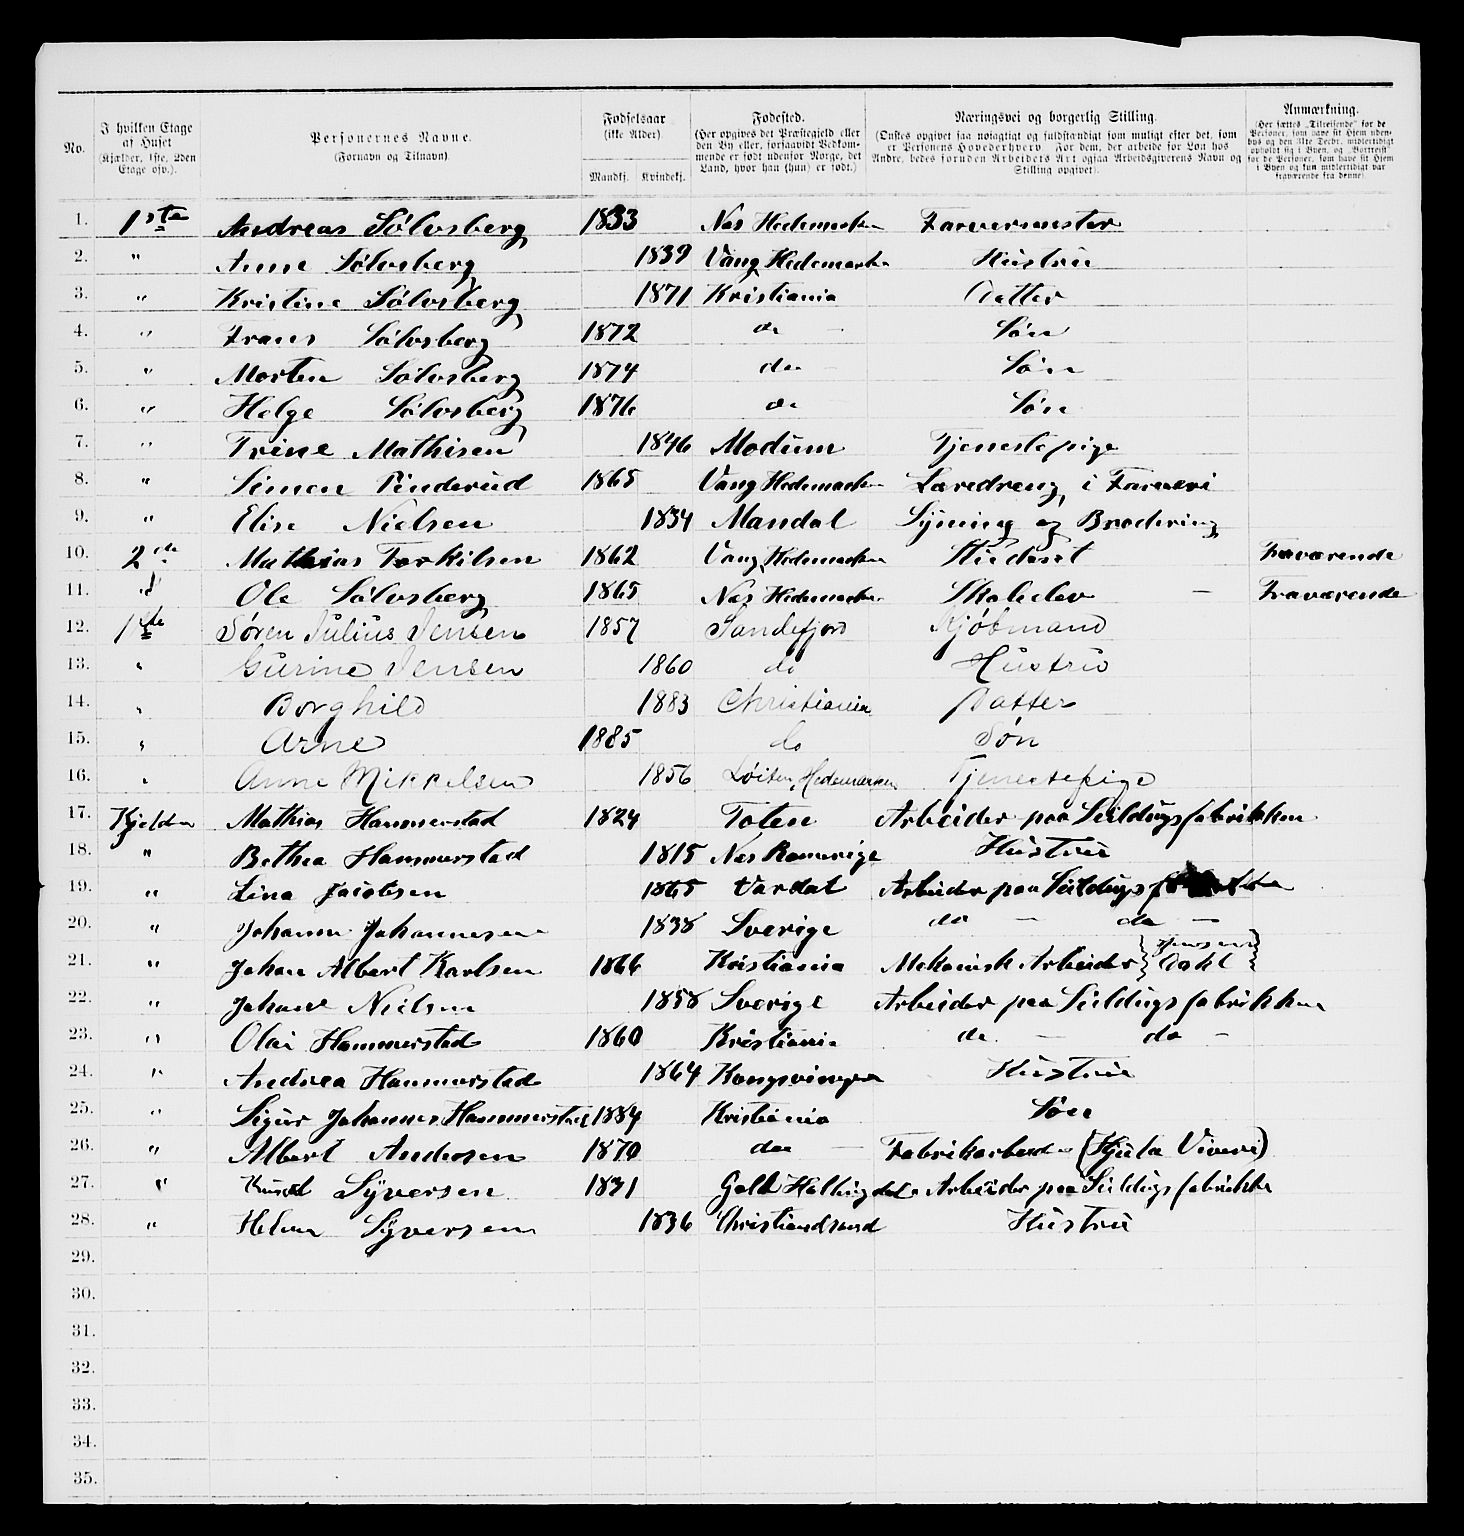 No. I hvilken Etage af Huset (Kjælder, 1ste, 2den Etage osv.). Personernes Navne. (Fornavn og Tilnavn). Fødselsaar (ikke Alder). Mandkj. Kvindekj. Fødested. (Her opgives det Præstegjeld eller den By eller, forsaavidt Vedkommende er født udenfor Norge, det Land, hvor han (hun) er født.) Næringsvei og borgerlig Stilling. (Ønskes opgivet saa nøiagtigt og fuldstændigt som muligt efter det, som er Personens Hovederhverv. For dem, der arbeide for Løn hos Andre, bedes foruden Arbeidets Art ogsaa Arbeidsgiverens Navn og Stilling opgivet). Anmærkning. (Her sættes „Tilreisende" for de Personer, som have sit Hjem udenbys og den 31te Decbr. midlertidigt opholdt sig i Byen, og „Bortreist" for de Personer, som have sit Hjem i Byen og kun midlertidigt var fraværende fra denne).
1. 1ste Andreas Sølvsberg 1833 Nes Hedemarken Farvermester
2. " Anne Sølvsberg 1839 Vang Hedemarken Hustru
3. " Kristine Sølvsberg 1871 Kristiania Datter
4. " Frans Sølvsberg 1872 do — Søn
5. " Morten Sølvsberg 1874 do — Søn
6. " Helge Sølvsberg 1876 do Søn
7. " Trine Mathisen 1846 Modum Tjenestepige
8. " Simen Finderud 1865 Vang Hedemarken Læredreng i Farveri
9. " Elise Nielsen 1834 Mandal Syning og Brodering
10. 2de Mathias Torkilsen 1862 Vang Hedemarken Student Fraværende
11. " Ole Sølvsberg 1865 Nes Hedemarken Skoleelev — Fraværende
12. 1ste Søren Julius Jensen 1857 Sandefjord Kjøbmand
13. " Gurine Jensen 1860 do Hustru
14. " Borghild 1883 Christiania Datter
15. " Arne 1885 do Søn
16. " Anne Mikkelsen 1856 Løiten, Hedemarken Tjenestepige
17. Kjelderen Mathias Hammerstad 1824 Toten Arbeider paa Seildugsfabrikken
18. " Bethea Hammerstad 1815 Nes Romerige Hustru
19. " Lina Jacobsen 1865 Vardal Arbeider paa Seildugs
20. " Johanne Johannesen 1838 Sverige do — do —
21. " Johan Albert Karlsen 1866 Kristiania Mekanisk Arbeider { Dahl }
22. " Johane Nielsen 1858 Sverige Arbeider paa Seildugsfabrikken
23. " Olai Hammerstad 1860 Kristiania do. — do —
24. " Andrea Hammerstad 1864 Kongsvinger Hustru
25. " Sigur Johannes Hammerstad 1884 Kristiania Søn
26. " Albert Andersen 1870 do — Fabrikarbeid. (Hjula Væveri)
27. " Knud Syversen 1831 Gol Hallingdal Arbeider paa Seildugsfabrikke
28. " Helene Syversen 1836 Christiansand Hustru
29.
30.
31.
32.
33.
34.
35.